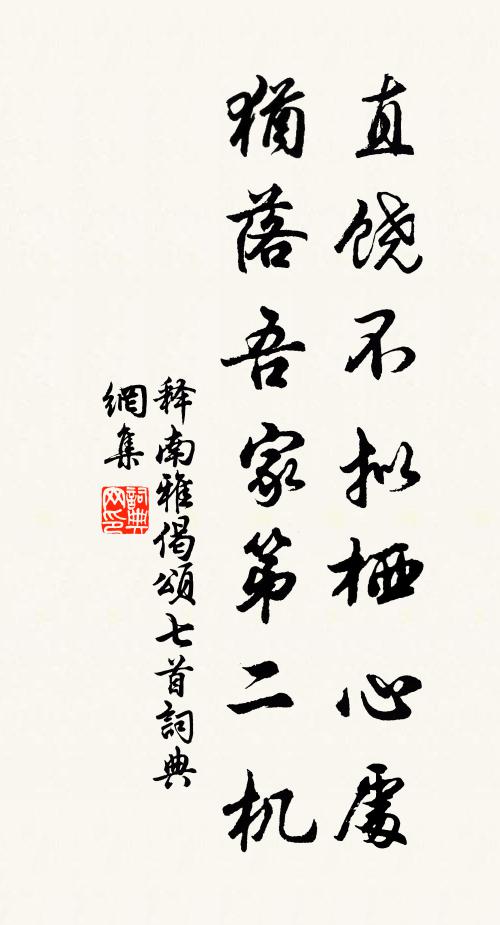 直饶不拟栖心處
猶落吾家第二机
释南雅偈頌七首詞典
網集
詞典
网印